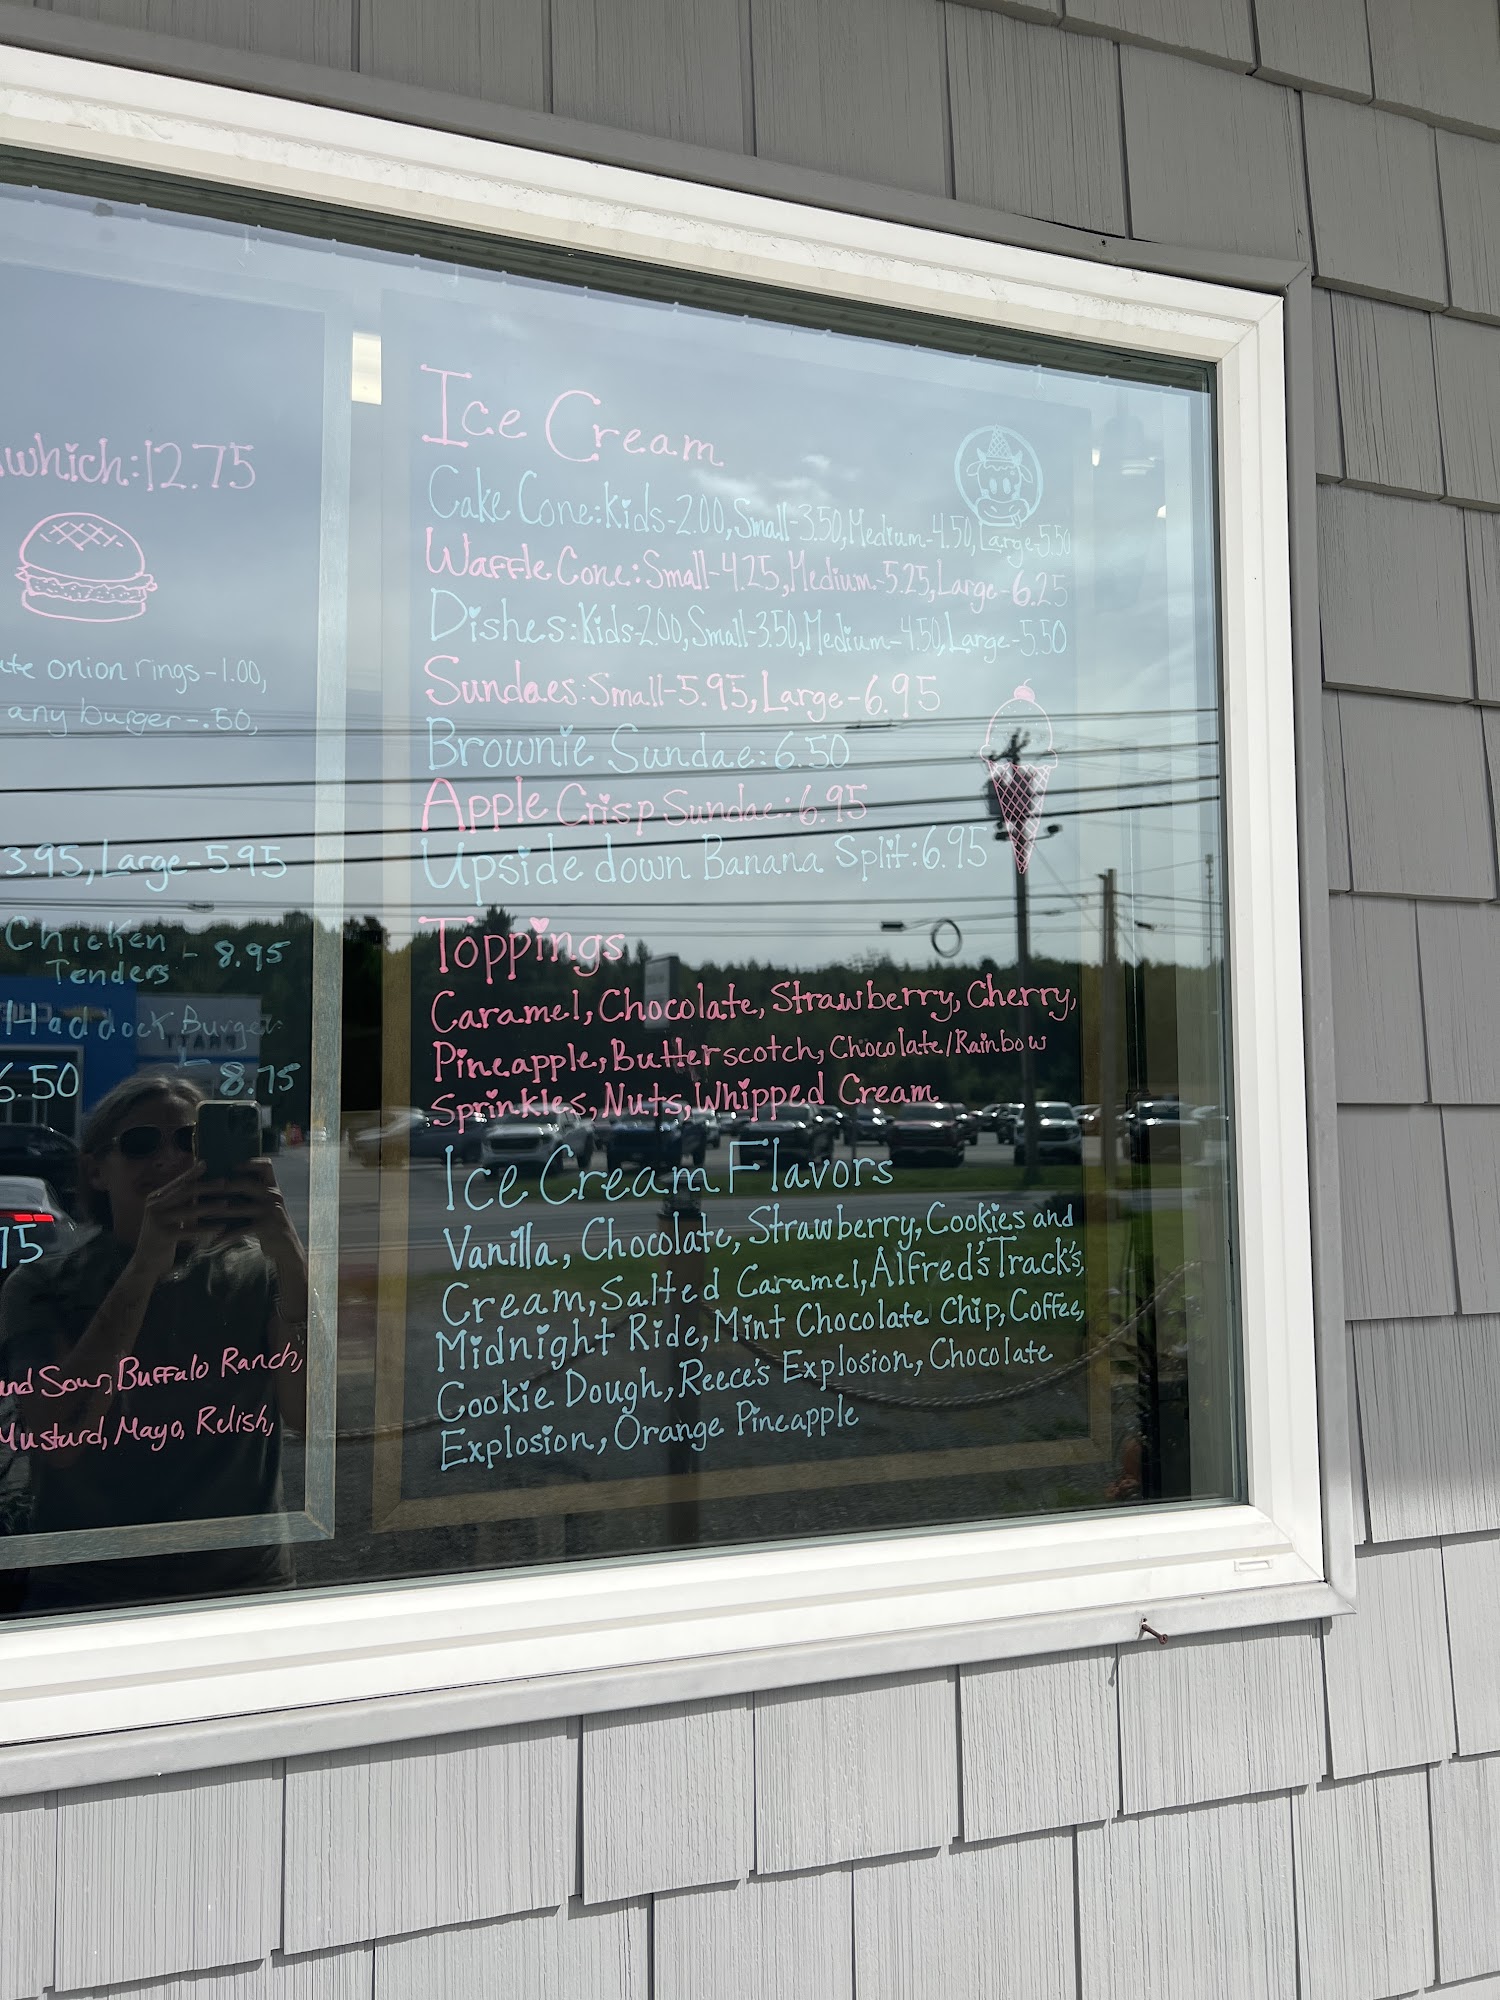 which:12.75
onion rings-1.00,
any burger-.50,
3.95, Large-5.95
Chicken
Tenders - 8.95
Haddock Burger:
6.50 - 8.75
75
and Sour, Buffalo Ranch,
Mustard, Mayo, Relish,
Ice Cream
Cake Cone: Kids-2.00, Small-3.50, Medium-4.50, Large-5.50
Waffle Cone: Small-4.25, Medium-5.25, Large-6.25
Dishes: Kids-2.00, Small-3.50, Medium-4.50, Large-5.50
Sundaes: Small-5.95, Large-6.95
Brownie Sundae: 6.50
Apple Crisp Sundae: 6.95
Upside down Banana Split: 6.95
Toppings
Caramel, Chocolate, Strawberry, Cherry,
Pineapple, Butterscotch, Chocolate/Rainbow
Sprinkles, Nuts, Whipped Cream
Ice Cream Flavors
Vanilla, Chocolate, Strawberry, Cookies and
Cream, Salted Caramel, Alfred's Track's,
Midnight Ride, Mint Chocolate Chip, Coffee,
Cookie Dough, Reece's Explosion, Chocolate
Explosion, Orange Pineapple